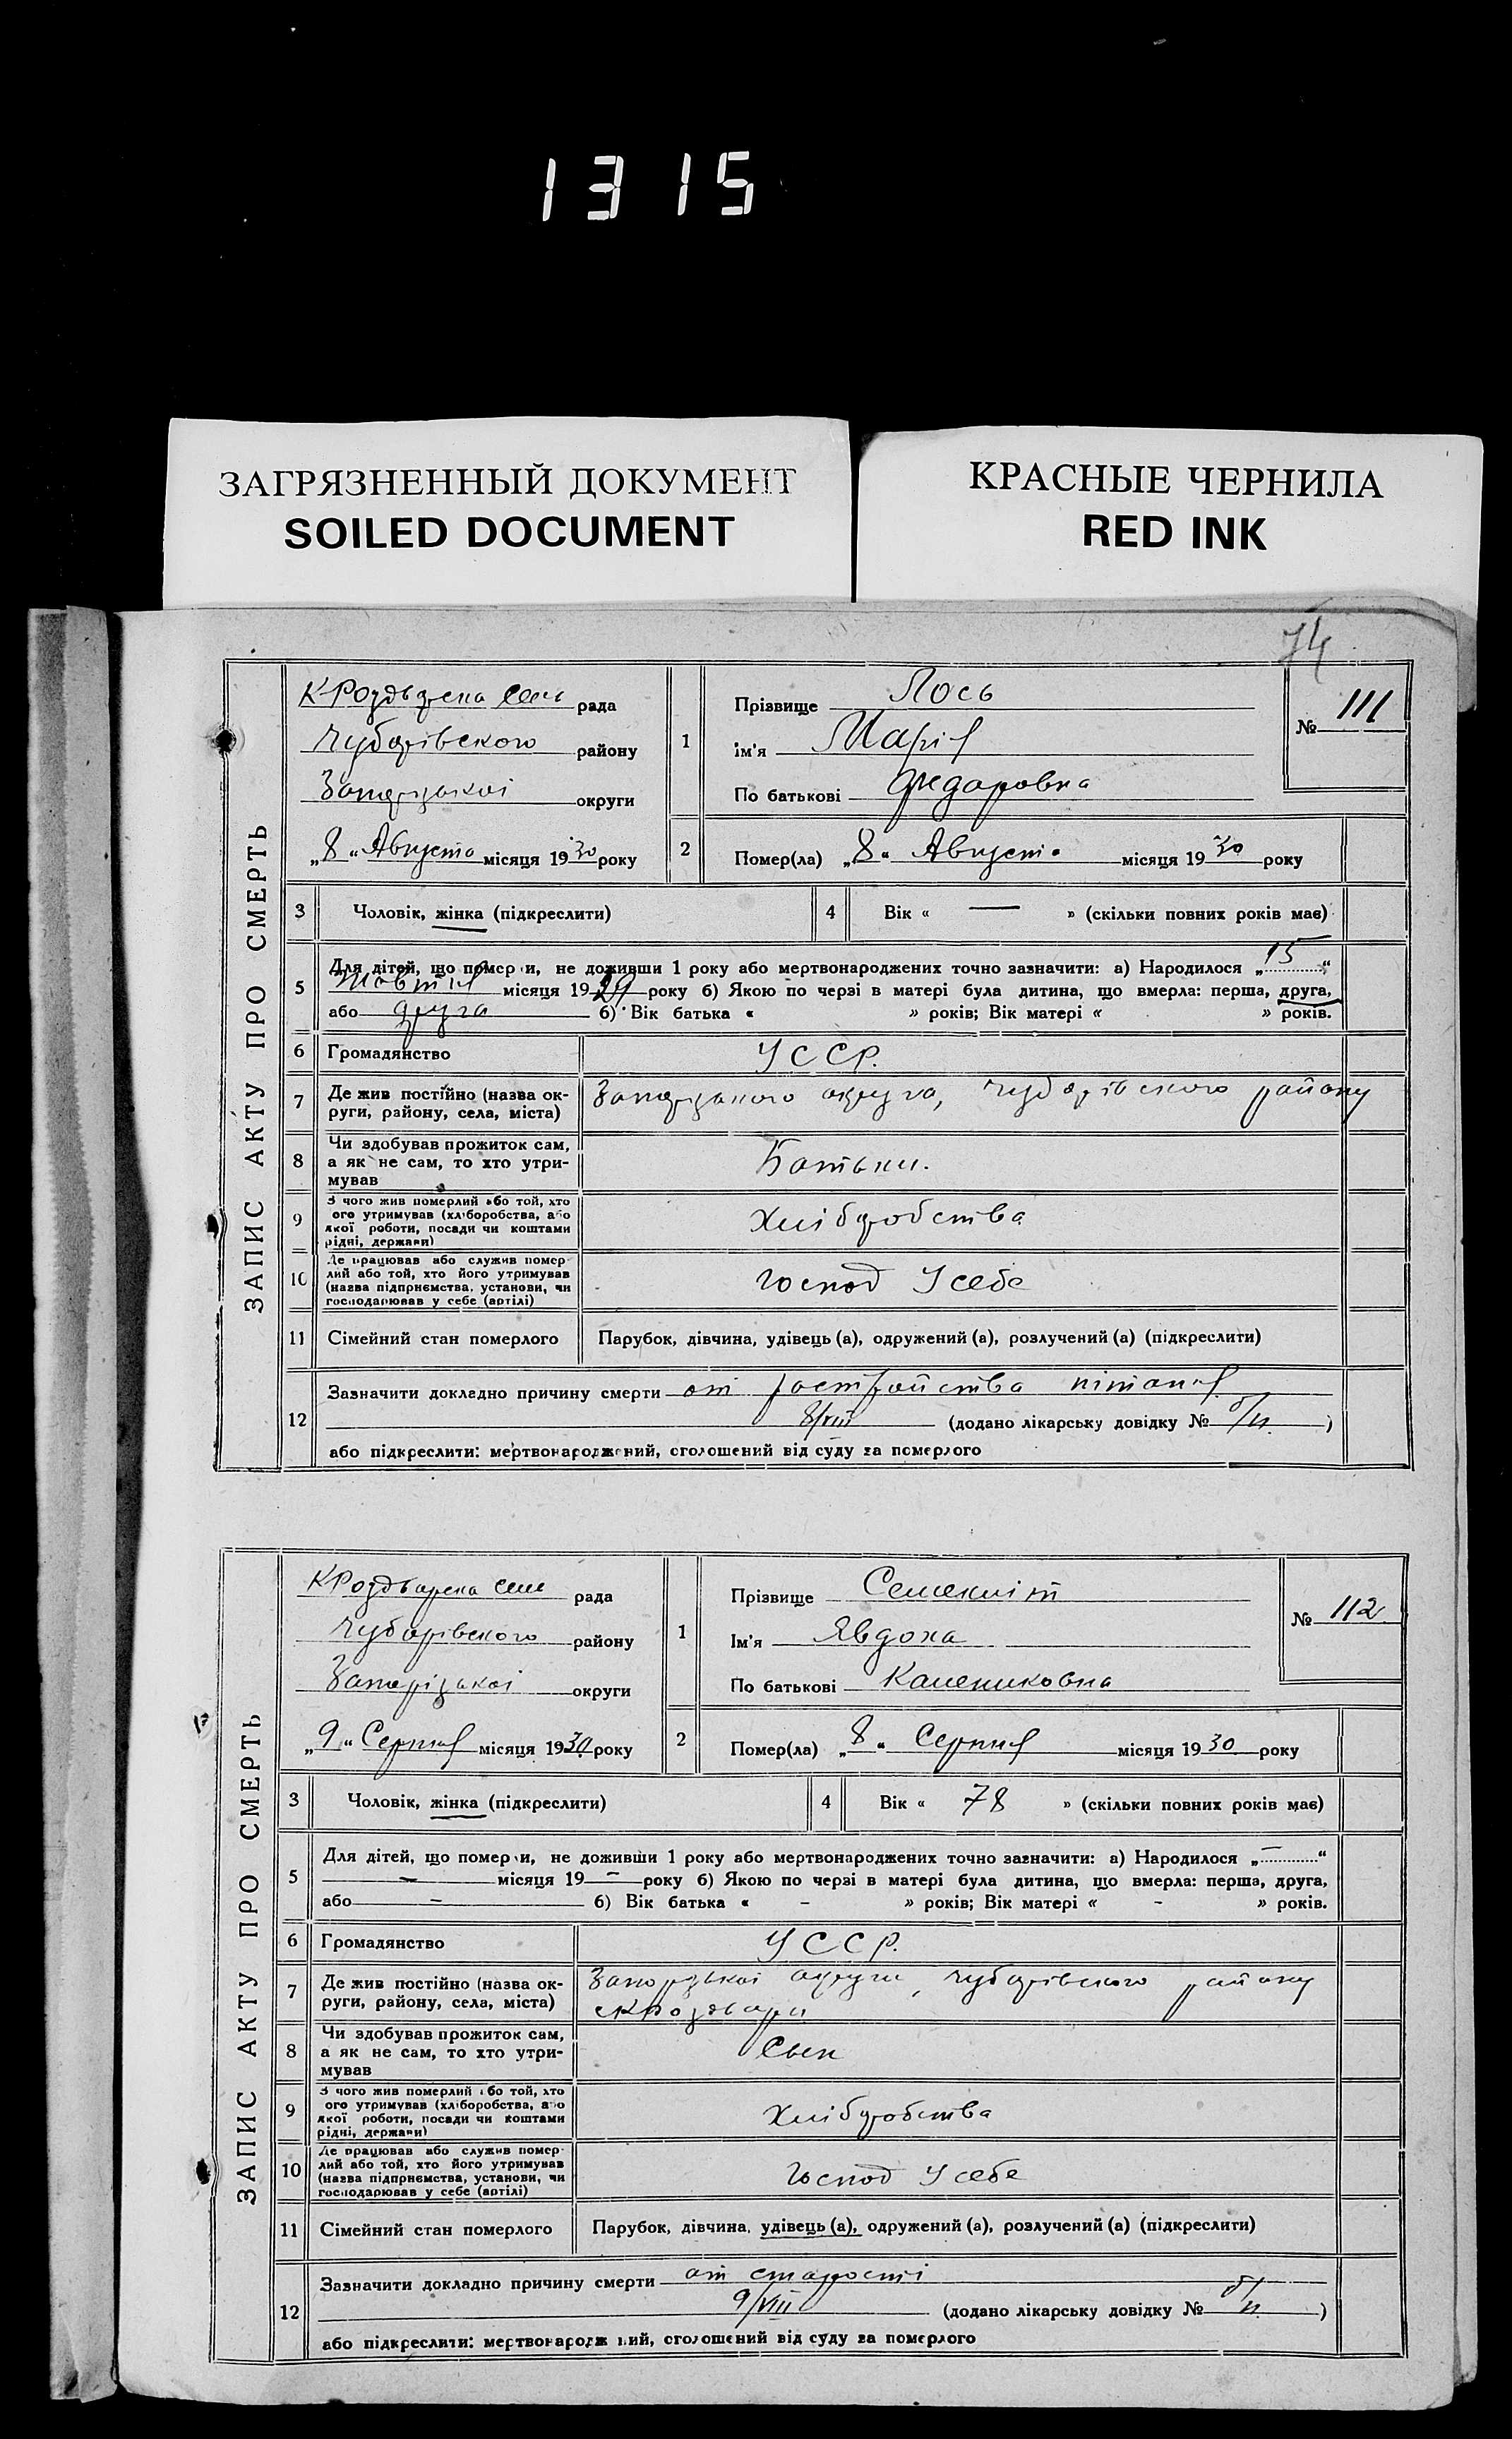 1315
ЗАГРЯЗНЕННЫЙ ДОКУМЕНТ
SOILED DOCUMENT
КРАСНЫЕ ЧЕРНИЛА
RED INK
74
ЗАПИС АКТУ ПРО СМЕРТЬ
рада
Чубарівского району
округи
„8“ Августа місяця 1930 року
1
Прізвище Лось
Ім'я Марія
По батькові Федаровна
№ 111
2
Помер(ла) „8“ Августа місяця 1930 року
3 Чоловік, жінка (підкреслити)
4 Вік « — » (скільки повних років має)
5 Для дітей, що померли, не доживши 1 року або мертвонароджених точно зазначити: а) Народилося „15“
Жовтня місяця 1929 року б) Якою по черзі в матері була дитина, що вмерла: перша, друга,
або друга б) Вік батька « » років; Вік матері « » років.
6 Громадянство УССР.
7 Де жив постійно (назва ок-
руги, району, села, міста)
округа, Чубарівского району
8 Чи здобував прожиток сам,
а як не сам, то хто утри-
мував
Батьки.
9 З чого жив померлий або той, хто
ого утримував (хліборобства, або
якої роботи, посади чи коштами
рідні, держави)
Хлібробства
10 Де працював або служив помер-
лий або той, хто його утримував
(назва підприємства, установи, чи
господарював у себе (артілі)
Господ У себе
11 Сімейний стан померлого Парубок, дівчина, удівець (а), одружений (а), розлучений (а) (підкреслити)
12 Зазначити докладно причину смерти от растройства пітания
8/VIII (додано лікарську довідку № б/н )
або підкреслити: мертвонароджений, оголошений від суду за померлого
ЗАПИС АКТУ ПРО СМЕРТЬ
рада
Чубарівского району
Запорізької округи
„9“ Серпня місяця 1930 року
1
Прізвище
Ім'я Явдоха
По батькові
№ 112
2
Помер(ла) „8“ Серпня місяця 1930 року
3 Чоловік, жінка (підкреслити)
4 Вік « 78 » (скільки повних років має)
5 Для дітей, що померли, не доживши 1 року або мертвонароджених точно зазначити: а) Народилося „–“
– місяця 19 – року б) Якою по черзі в матері була дитина, що вмерла: перша, друга,
або – б) Вік батька « – » років; Вік матері « – » років.
6 Громадянство УССР.
7 Де жив постійно (назва ок-
руги, району, села, міста)
округи, Чубарівского району
8 Чи здобував прожиток сам,
а як не сам, то хто утри-
мував
Сын
9 З чого жив померлий або той, хто
ого утримував (хліборобства, або
якої роботи, посади чи коштами
рідні, держави)
Хлібробства
10 Де працював або служив помер-
лий або той, хто його утримував
(назва підприємства, установи, чи
господарював у себе (артілі)
Господ У себе
11 Сімейний стан померлого Парубок, дівчина, удівець (а), одружений (а), розлучений (а) (підкреслити)
12 Зазначити докладно причину смерти от старості
9/VIII (додано лікарську довідку № б/н )
або підкреслити: мертвонароджений, оголошений від суду за померлого